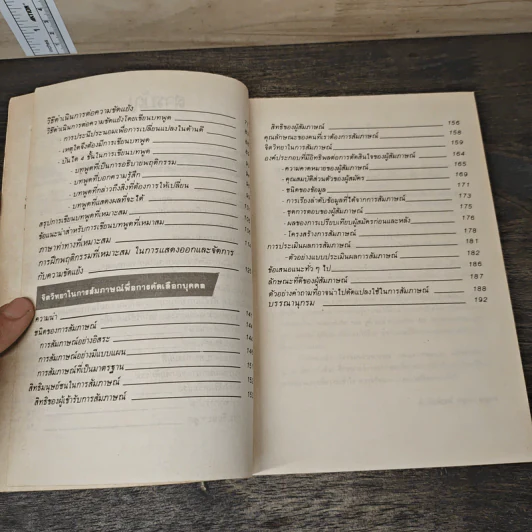 วิธีดำเนินการต่อความขัดแย้ง
วิธีดำเนินการต่อความขัดแย้งโดยเขียนบทพูด
- การประนีประนอมเพื่อการเปลี่ยนแปลงในด้านดี
- เหตุใดจึงต้องมีการเขียนบทพูด
- บันได 4 ขั้นในการเขียนบทพูด
- บทพูดที่เป็นการอธิบายพฤติกรรม
- บทพูดที่บอกความรู้สึก
- บทพูดที่กล่าวถึงสิ่งที่ต้องการให้เปลี่ยน
- บทพูดที่แสดงผลที่จะได้
สรุปการเขียนบทพูดที่เหมาะสม
ข้อแนะนำสำหรับการเขียนบทพูดที่เหมาะสม
ภาษาท่าทางที่เหมาะสม
การฝึกพฤติกรรมที่เหมาะสม ในการแสดงออกและจัดการ
กับความขัดแย้ง
จิตวิทยาในการสัมภาษณ์เพื่อการคัดเลือกบุคคล
ความนำ
ชนิดของการสัมภาษณ์
การสัมภาษณ์อย่างอิสระ
การสัมภาษณ์อย่างมีแบบแผน
การสัมภาษณ์ที่เป็นมาตรฐาน
สิทธิมนุษย์ชนในการสัมภาษณ์
สิทธิของผู้เข้ารับการสัมภาษณ์
สิทธิของผู้สัมภาษณ์ 156
คุณลักษณะของคนที่เราต้องการสัมภาษณ์ 158
จิตวิทยาในการสัมภาษณ์ 159
องค์ประกอบที่มีอิทธิพลต่อการตัดสินใจของผู้สัมภาษณ์ 164
- ความคาดหมายของผู้สัมภาษณ์ 165
- คุณสมบัติส่วนตัวของผู้สมัคร 169
- ชนิดของข้อมูล 171
- การเรียงลำดับข้อมูลที่ได้จากการสัมภาษณ์ 173
- ชุดการตอบของผู้สัมภาษณ์ 175
- ผลของการเปรียบเทียบผู้สมัครก่อนและหลัง 176
- โครงสร้างการสัมภาษณ์ 178
การประเมินผลการสัมภาษณ์ 181
- ตัวอย่างแบบประเมินผลการสัมภาษณ์ 182
ข้อเสนอแนะทั่ว ๆ ไป 186
ลักษณะที่ดีของผู้สัมภาษณ์ 187
ตัวอย่างคำถามที่อาจนำไปดัดแปลงใช้ในการสัมภาษณ์ 188
บรรณานุกรม 192